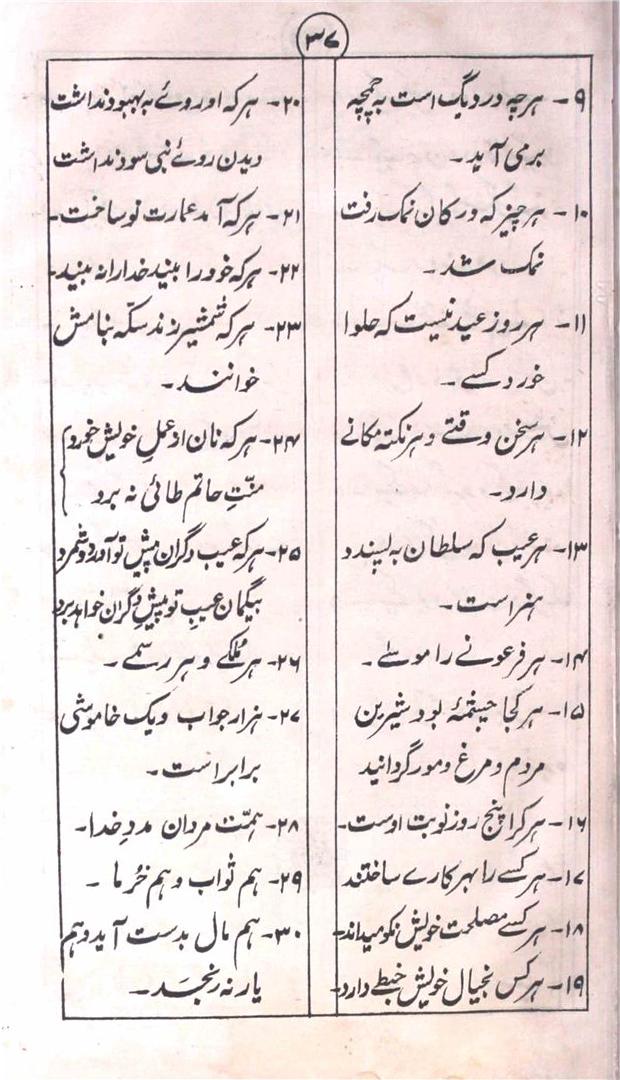 ۳۷
۹- ہرچہ در دیگ است بہ چمچہ
برمی آید۔
۱۰- ہر چیز کہ در کان نمک رفت
نمک شد۔
۱۱- ہر روز عید نیست کہ حلوا
خورد کسے۔
۱۲- ہر سخن وقتے و ہر نکتہ مکانے
دارد۔
۱۳- ہر عیب کہ سلطان بہ پسندد
ہنر است۔
۱۴- ہر فرعونے را موسےٰ۔
۱۵- ہر کجا چشمۂ بود شیریں
مردم و مرغ و مور گردانید
۱۶- ہر کرا پنج روز نوبت اوست۔
۱۷- ہر کسے را بہر کارے ساختند
۱۸- ہر کسے مصلحت خویش نکو میداند۔
۱۹- ہر کس بخیال خویش خبطے دارد۔
۲۰- ہر کہ او روئے بہ بہبود نداشت
دیدن روئے نبی سود نداشت
۲۱- ہر کہ آمد عمارت نو ساخت۔
۲۲- ہر کہ خود را بیند خدا را نہ بیند۔
۲۳- ہر کہ شمشیر زند سکّہ بنامش
خوانند۔
۲۴- ہر کہ نان از عملِ خویش خورد
منّتِ حاتم طائی نہ برد
۲۵- ہر کہ عیب دگران پیشِ تو آورد و شمرد
بیگمان عیبِ تو پیشِ دگران خواہد برد
۲۶- ہر مُلکے و ہر رسمے۔
۲۷- ہزار جواب و یک خاموشی
برابر است۔
۲۸- ہمّت مردان مددِ خدا۔
۲۹- ہم ثواب و ہم خُرما ۔
۳۰- ہم مال بدست آید و ہم
یار نہ رنجد۔